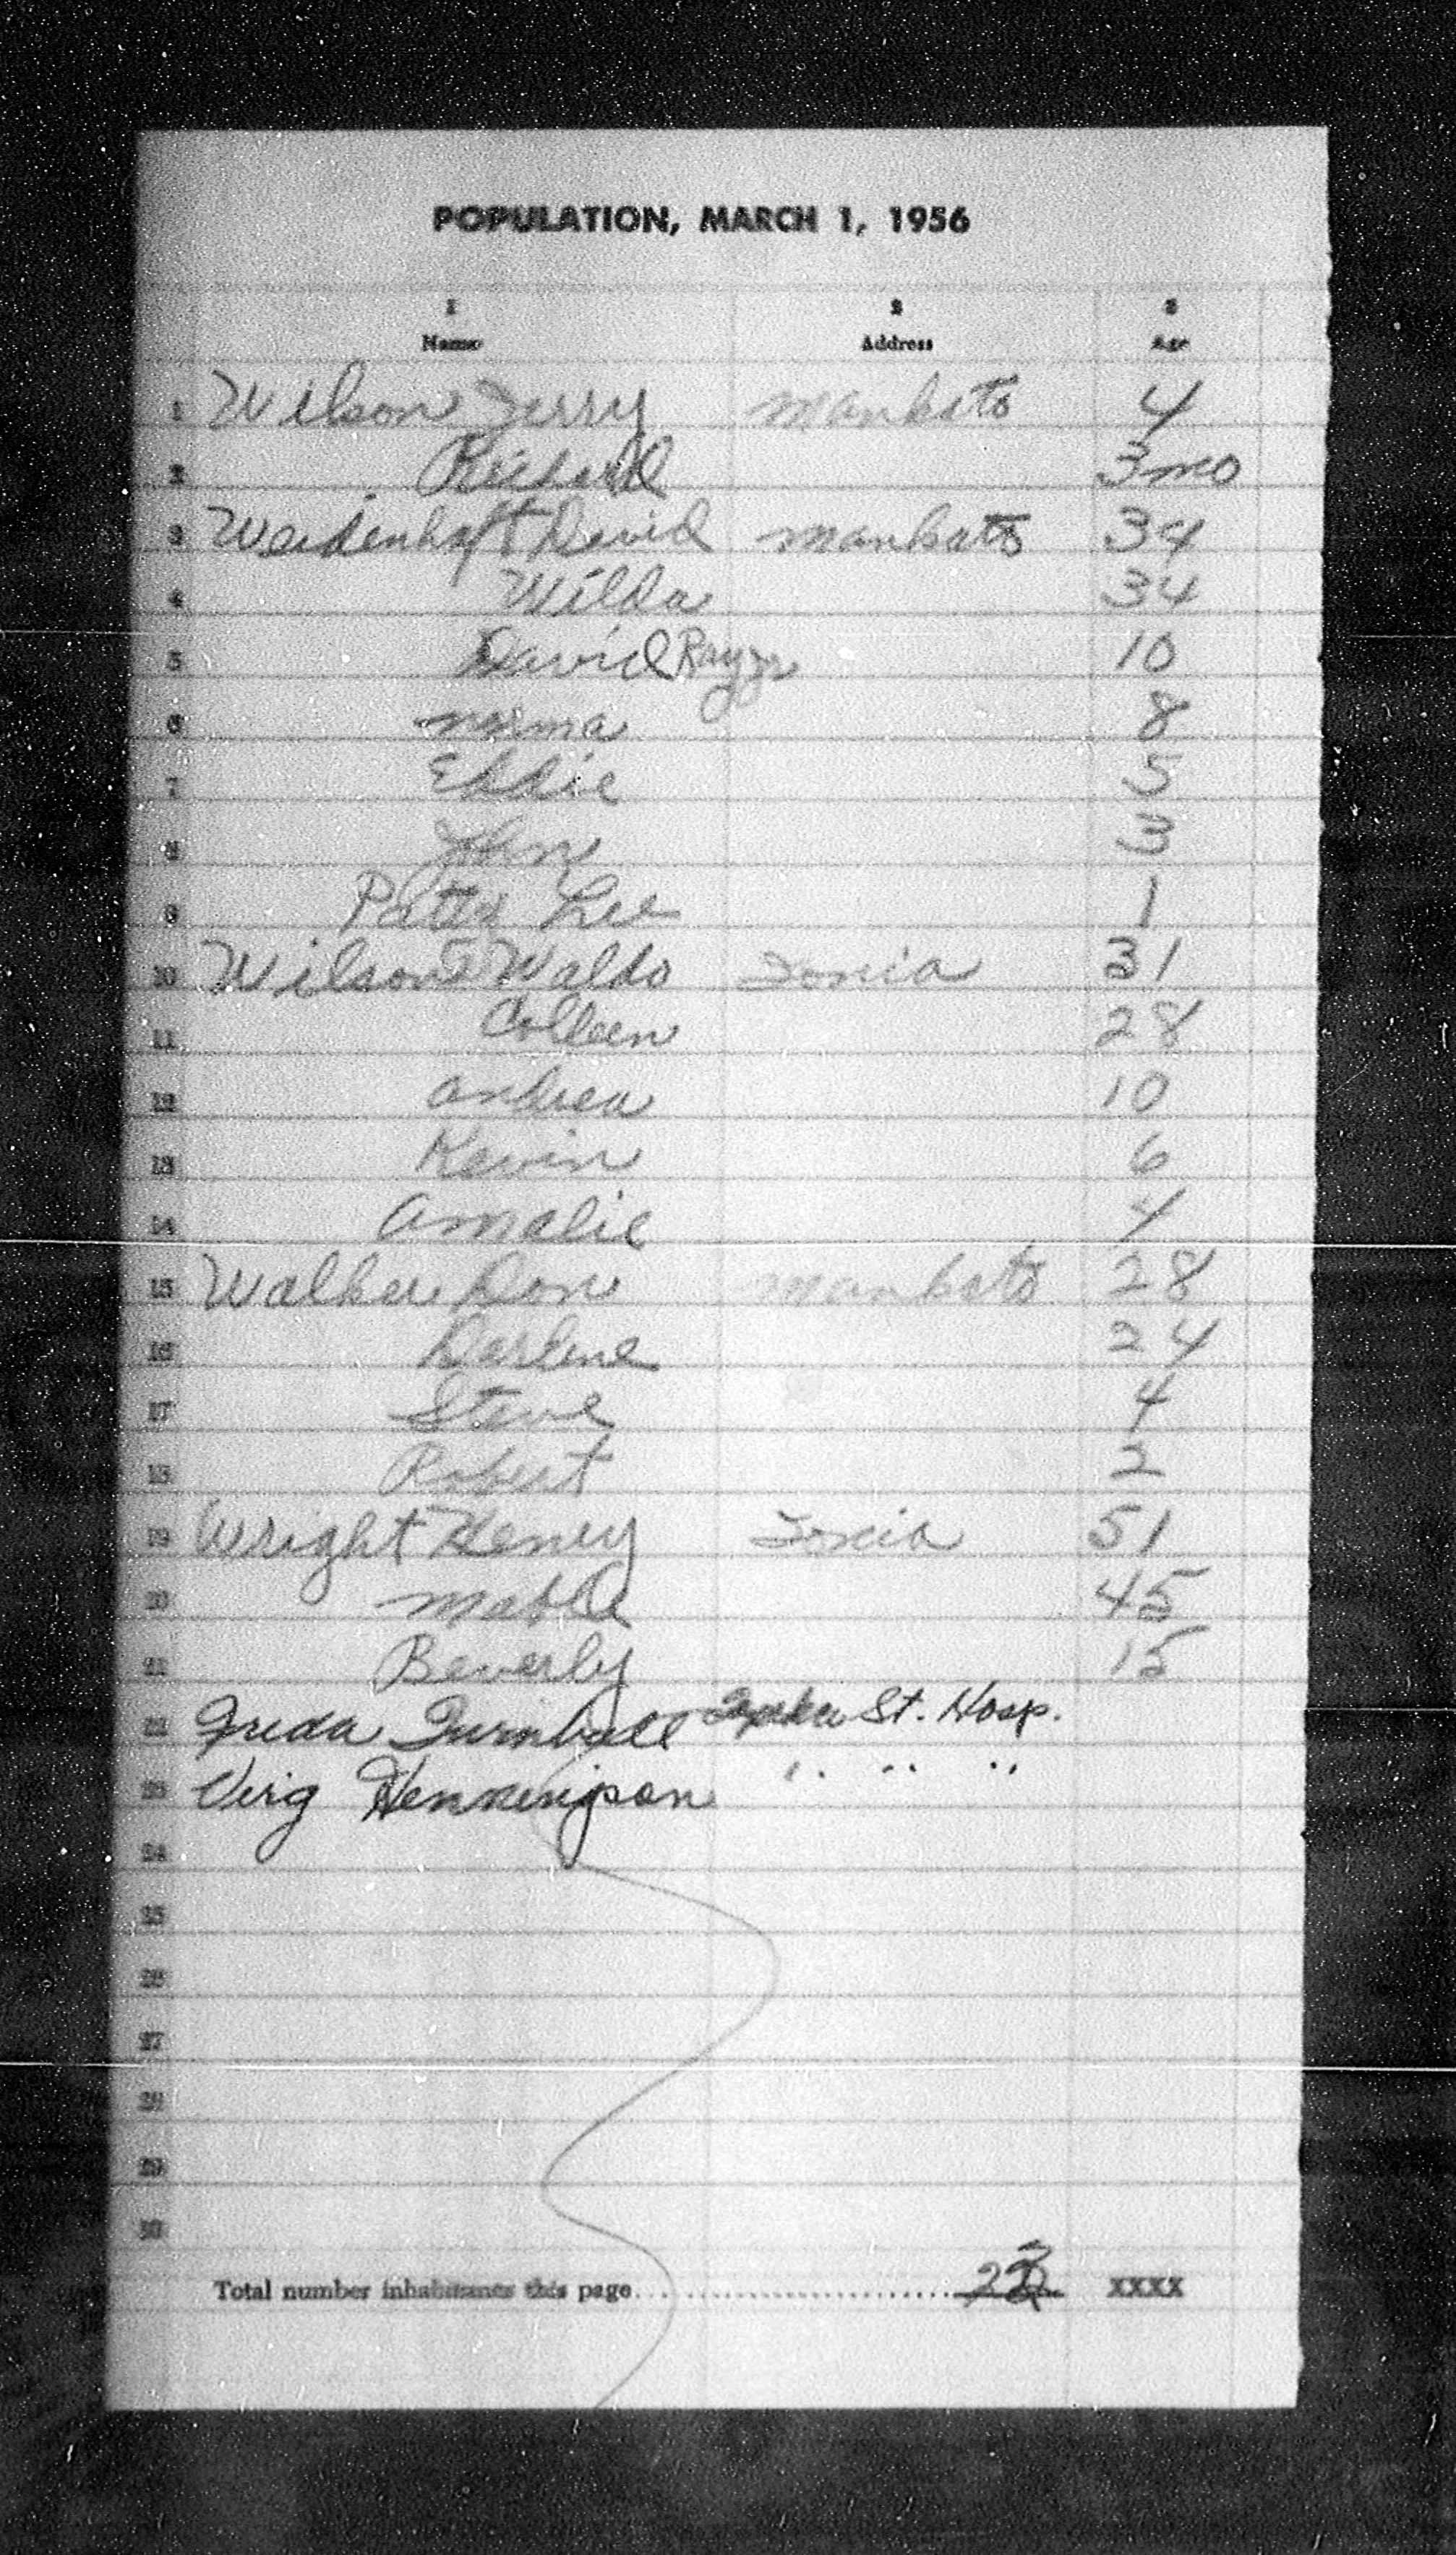 POPULATION, MARCH 1, 1956
1 2 3
Name Address Age
1 Wilson Jerry Mankato 4
2 Richard 3 mo
3 Weidenhaft David Mankato 34
4 Wilda 34
5 David Ray Jr 10
6 Norma 8
7 Eddie 5
8 John 3
9 Patty Lee 1
10 Wilson Waldo Ionia 31
11 Colleen 28
12 Andrea 10
13 Kevin 6
14 Amalie 4
15 Walker Don Mankato 28
16 Darlene 24
17 Steve 4
18 Robert 2
19 Wright Henry Ionia 51
20 Mable 45
21 Beverly 15
22 Freda Turnbull Topeka St. Hosp.
23 Virg Henningson " " "
24
25
26
27
28
29
30
Total number inhabitants this page 23 XXXX